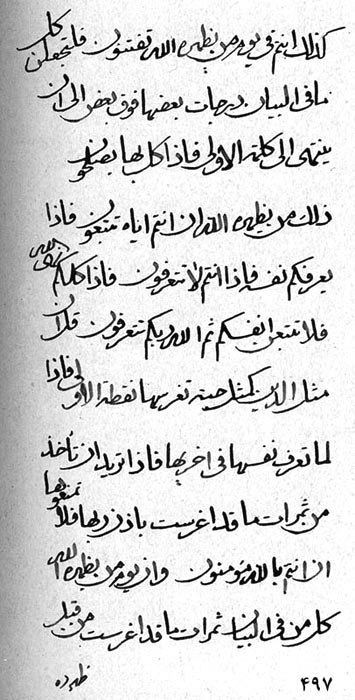 كذلك انتم في يوم من يظهره الله تفتنون فلتجعلن كل
ما في البيان درجات بعضها فوق بعض الى ان
ينتهى الى كلمة الاولى فاذا كل بها يصلحون
ذلك من يظهره الله ان انتم اياه تتبعون فاذا
يعرفكم نفسه فاذا انتم لا تتعرفون فاذا كلكم
فلا تتبعن انفسكم ثم الله ربكم تتعرفون قل ان
مثل الدين كمثل حبة تغرسها نقطة الاولى فاذا
لما تعرف نفسها في اخريها فاذا تريد ان تأخذ
من ثمرات ما قد اغرست باذن ربها فلا تمنعوها
ان انتم بالله مؤمنون وان يوم من يظهره الله
كل من في البيان ثمرات ما قد اغرست من قبل
۴۹۷